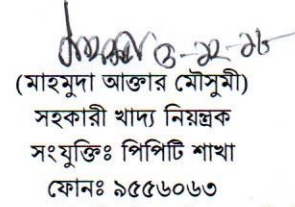 ৩-১২-১৮
(মাহমুদা আক্তার মৌসুমী)
সহকারী খাদ্য নিয়ন্ত্রক
সংযুক্তিঃ পিপিটি শাখা
ফোনঃ ৯৫৫৬০৬৩